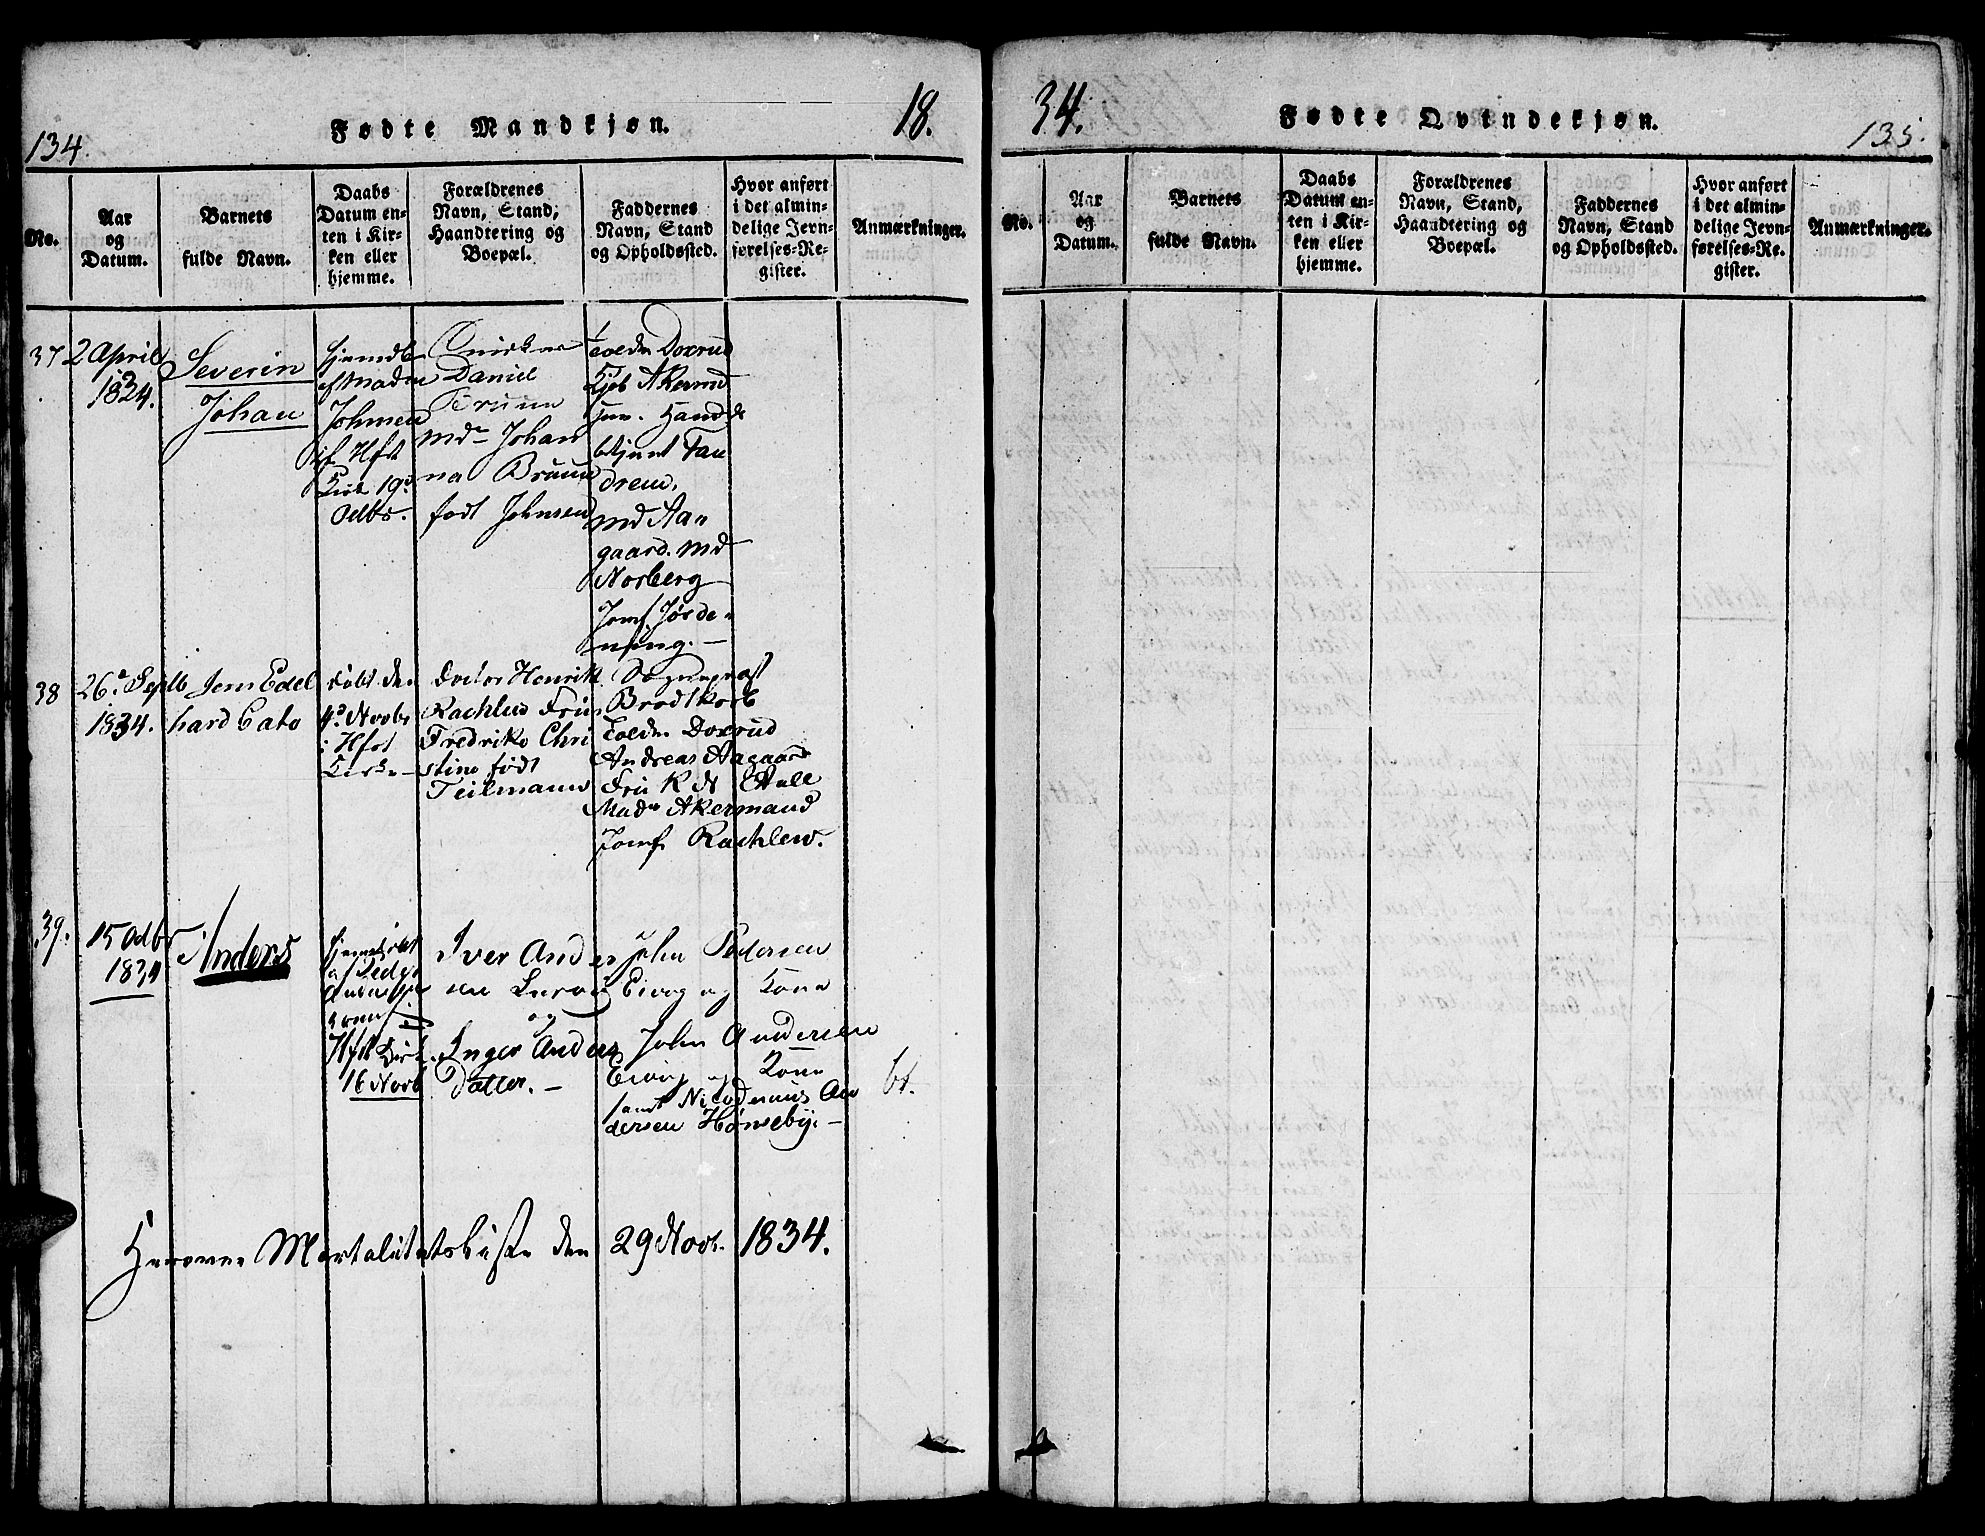 134.
Fødte Mandkjøn.
18.
No.
Aar
og
Datum.
Barnets
fulde Navn.
Daabs
Datum en-
ten i Kir-
ken eller
hjemme.
Forældrenes
Navn, Stand,
Haandtering og
Boepæl.
Faddernes
Navn, Stand
og Opholdssted.
Hvor anført
i det almin-
delige Jevn-
førelses-Re-
gister.
Anmærkninger.
37
2 April
1834.
Severin
Johan
hjemdb
af Madm
Johnsen
i Hfst
Kirk 19d
Octbr.
Daniel
Bruun
Mdm Johan
na Bruun
født Johnsen
Toldr Doxrud
Akermd
jun. Handls
btjent Tan
drem.
Md Aa
gaard. Md
Norberg
Jomf. Jørde
ning. —
38
26d Septb
1834.
Jens Edel
hard Cato
døbt den
4d Novbr
i Hfst
Kirke —
Doctor Henrik
Rachlew Fru
Fredrike Chri
stine født
Teilmann
Sognepræst
Brodtkorb
Toldr Doxrud
Andreas Aagaard
Fru K N Hall
Madm Akermand
Jomf. Rachlew.
39.
15 Octbr
1834
Anders
hjemdøbt
af Peder
i
Hfst Kirk
16 Novb
Iver Anders
sen
og
Inger Anders
Datter. —
John Pedersen
Eivog og Kone
John Andersen
Eivog og Kone
samt Nicodemus An
dersen Hønseby. —
bt.
Herover Mortalitetsliste den 29 Novb. 1834.
34.
Fødte Qvindekjøn.
135.
No.
Aar
og
Datum.
Barnets
fulde Navn.
Daabs
Datum en-
ten i Kir-
ken eller
hjemme.
Forældrenes
Navn, Stand,
Haandtering og
Boepæl.
Faddernes
Navn, Stand
og Opholdssted.
Hvor anført
i det almin-
delige Jevn-
førelses-Re-
gister.
Anmærkninger.